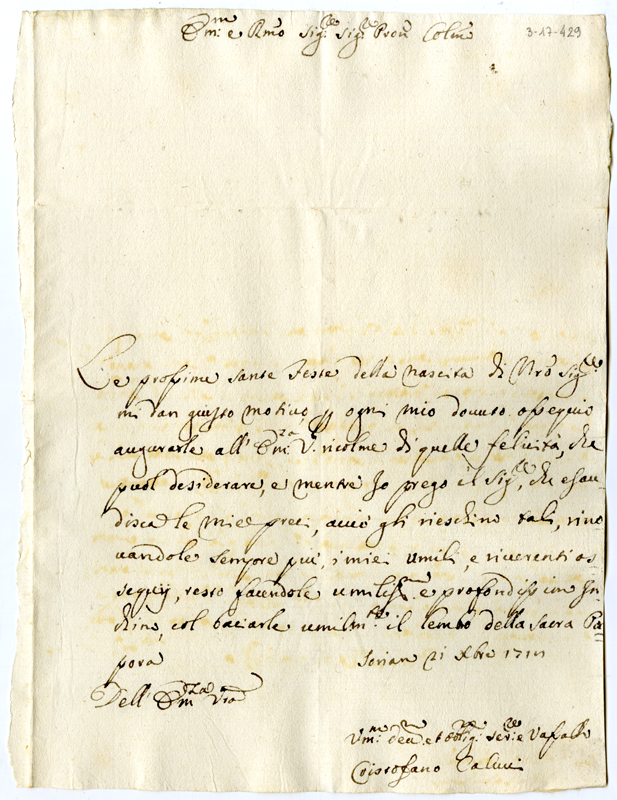 Em.mo e Rmo Sig.re Sig.re Pron Colmo
3-17-429
Le prossime sante Feste della nascita di Nro Sig.re
mi dan giusto motivo p ogni mio douuto ossequio
augurarle all'Em.za V. ricolme di quelle felicità, che
puol desiderare, e mentre Io prego il Sig.re, che esau-
disca le miee preci, acciò gli rieschino tali, rino
uandole sempre più, i miei umili, e riuerenti os
sequij, resto facendole umiliss.mo e profondissimo In-
chino, col baciarle umilm.te il lembo della Sacra Pa
pora
Sorian 21 Xbre
Dell'Em.za Vra
Vm.mo deu.mo et obblig.mo Ser.re e Vassallo
Cristofano